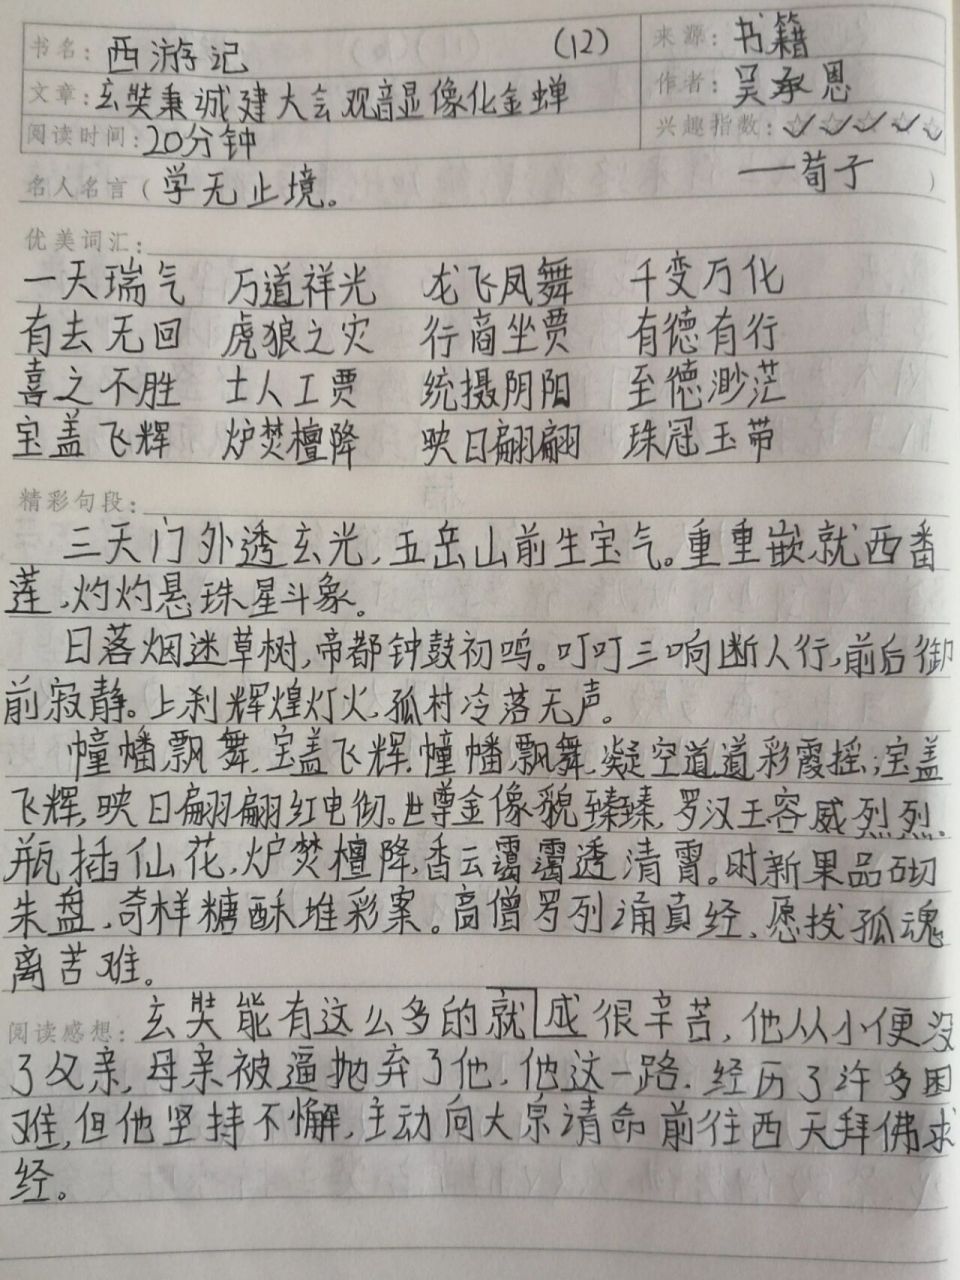 书名：西游记 (12) 来源：书籍
文章：玄奘秉诚建大会观音显像化金蝉 作者：吴承恩
阅读时间：20分钟 兴趣指数：☆☆☆☆☆
名人名言（学无止境。 ——荀子 ）
优美词汇：
一天瑞气 万道祥光 龙飞凤舞 千变万化
有去无回 虎狼之灾 行商坐贾 有德有行
喜之不胜 士人工贾 统摄阴阳 至德渺茫
宝盖飞辉 炉焚檀降 映日翩翩 珠冠玉带
精彩句段：
三天门外透玄光，五岳山前生宝气。重重嵌就西番
莲，灼灼悬珠星斗象。
日落烟迷草树，帝都钟鼓初鸣。叮叮三响断人行，前后御
前寂静。上刹辉煌灯火，孤村冷落无声。
幢幡飘舞，宝盖飞辉，幢幡飘舞，凝空道道彩霞摇；宝盖
飞辉，映日翩翩红电彻。世尊金像貌臻臻，罗汉玉容威烈烈。
瓶插仙花，炉焚檀降，香云霭霭透清霄。时新果品砌
朱盘，奇样糖酥堆彩案。高僧罗列诵真经，愿拔孤魂
离苦难。
阅读感想：玄奘能有这么多的就成很辛苦，他从小便没
了父亲，母亲被逼抛弃了他，他这一路，经历了许多困
难，但他坚持不懈，主动向大宗请命前往西天拜佛求
经。